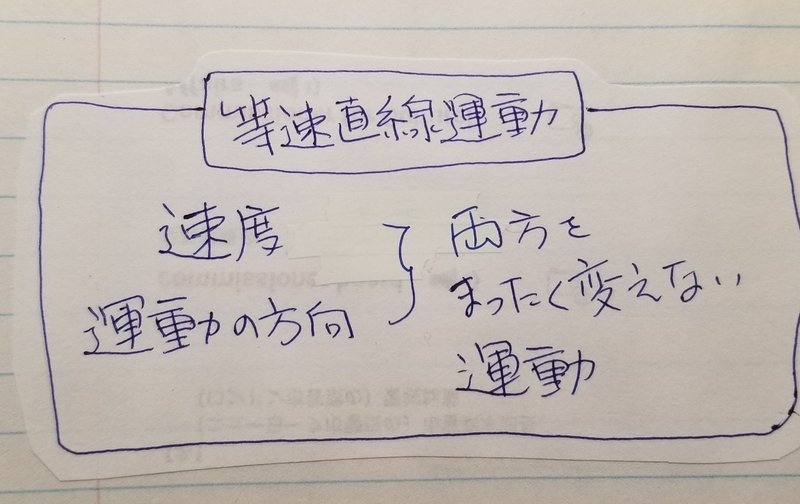 等速直線運動
速度
運動の方向
両方を
まったく変えない
運動